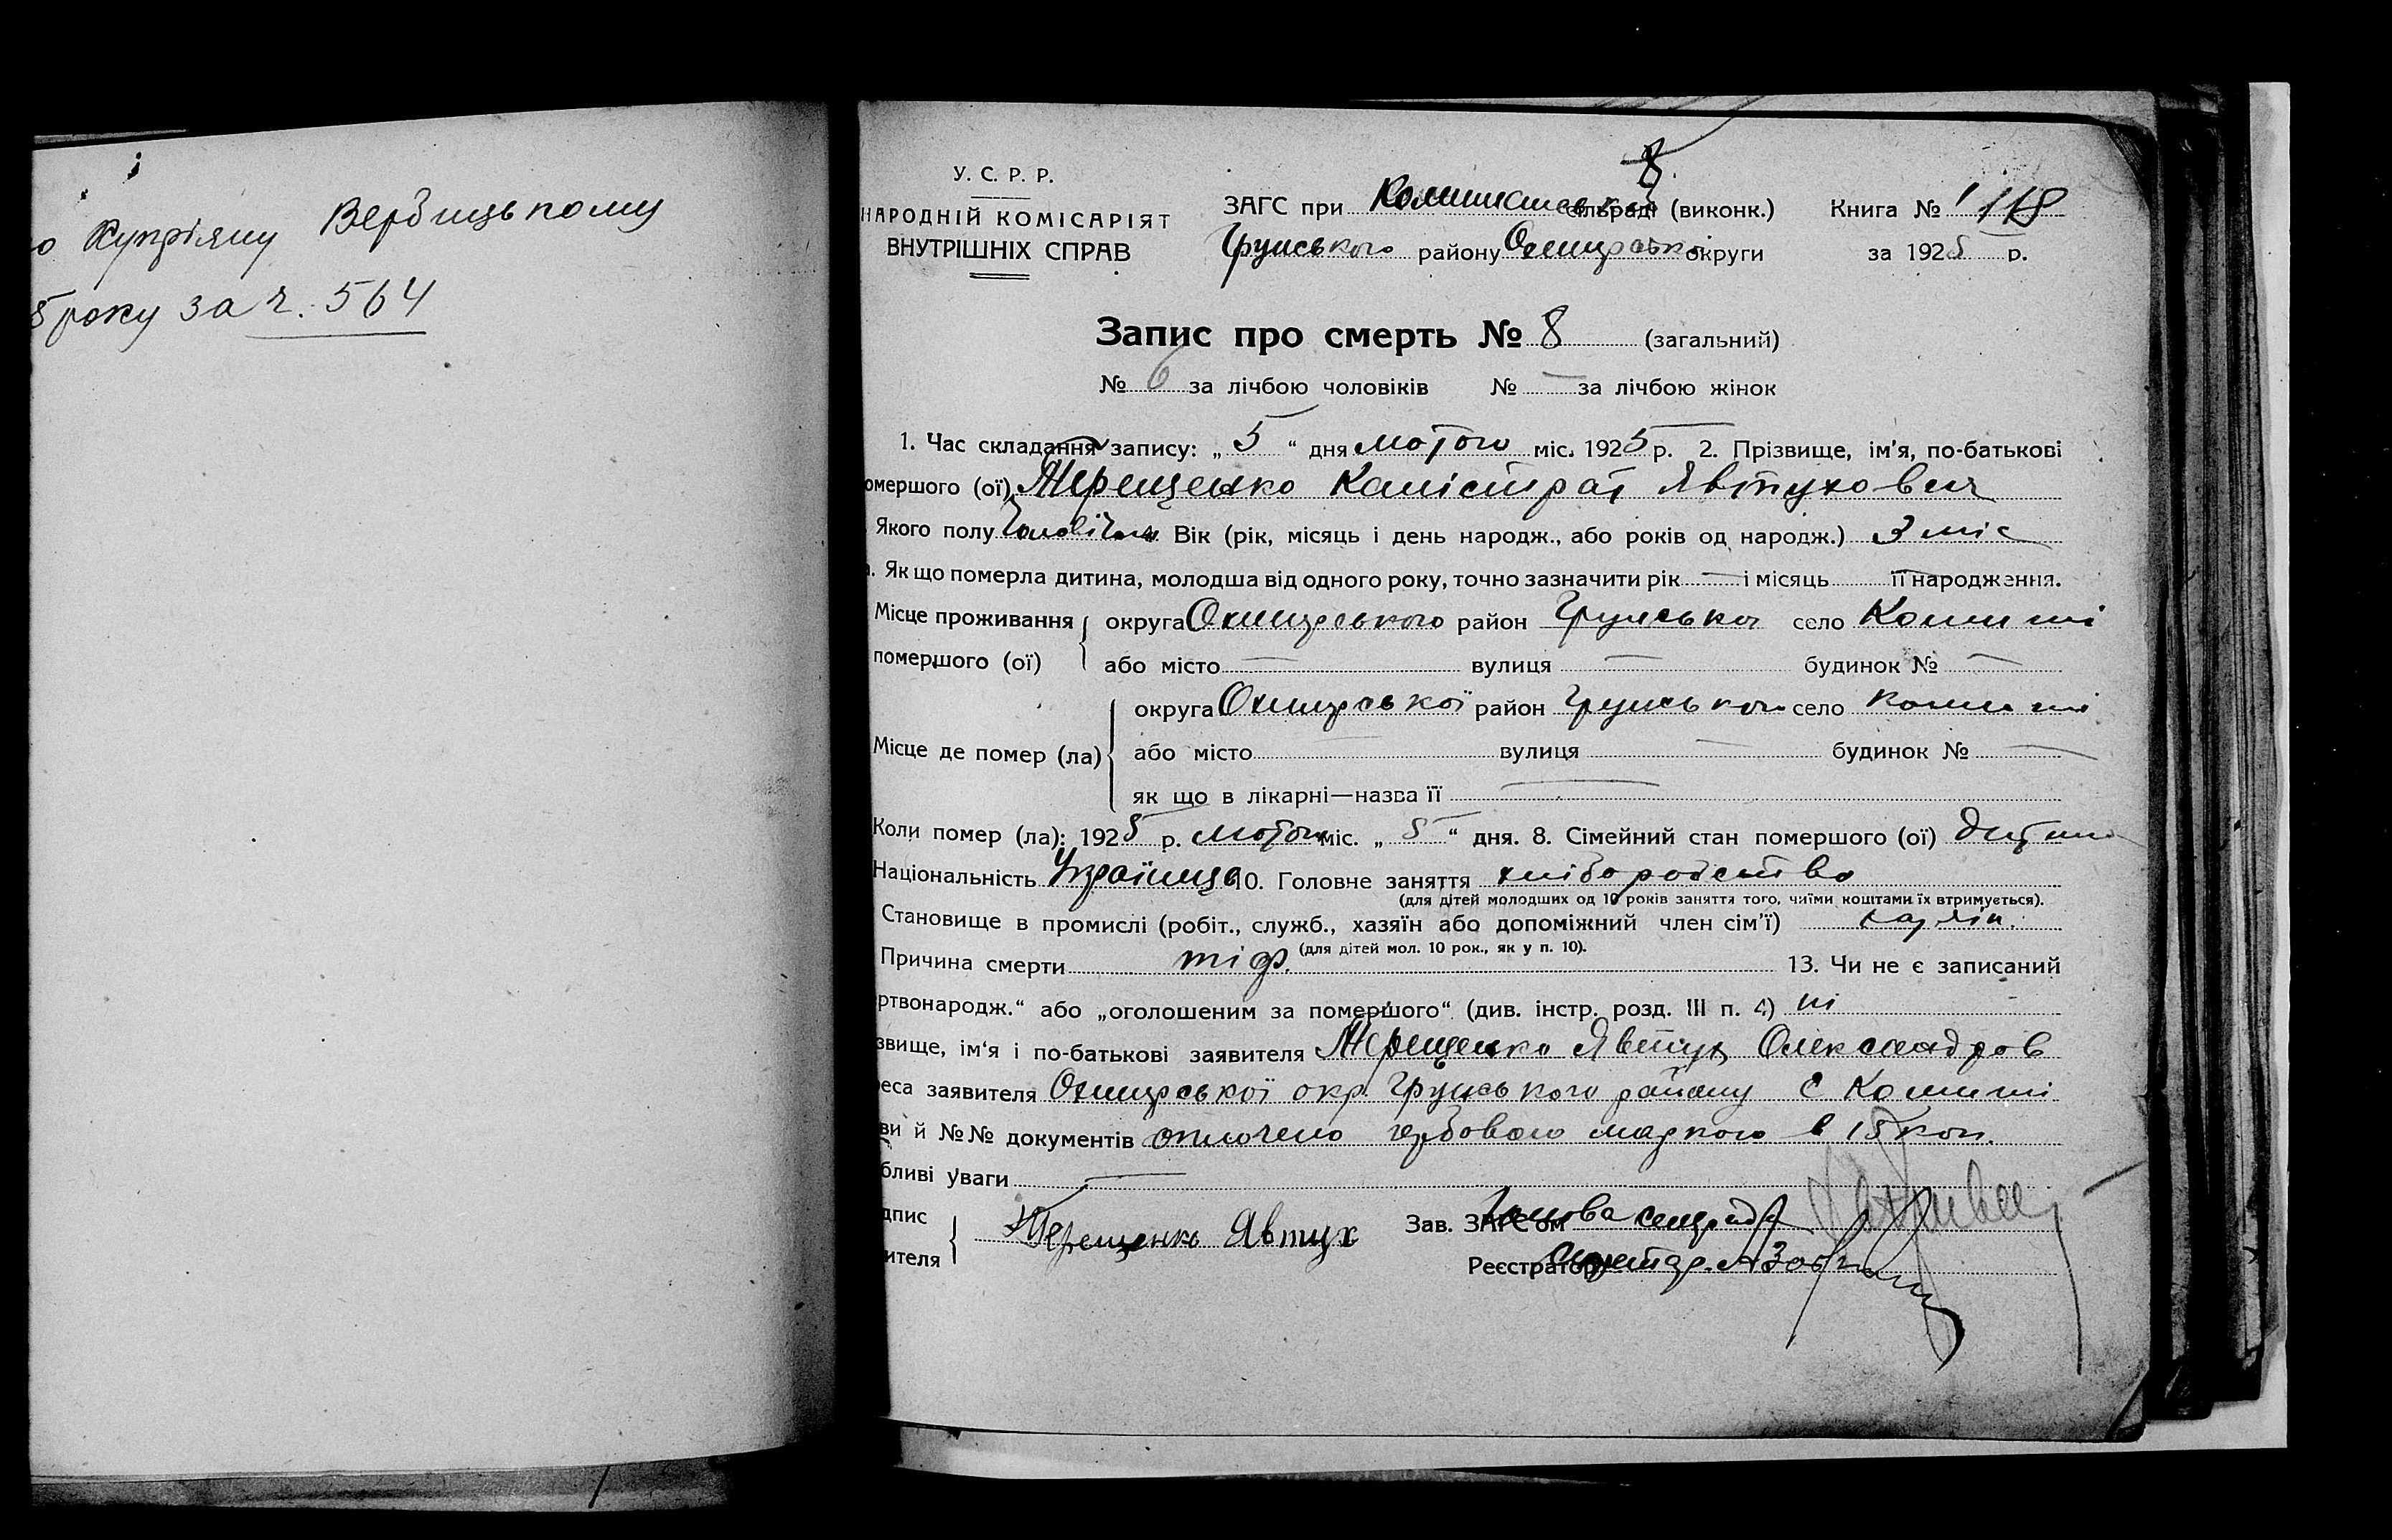 о Купріяну Вербицькому
5 року за ч. 564
8
У. С. Р. Р.
НАРОДНІЙ КОМІСАРІЯТ
ВНУТРІШНІХ СПРАВ
ЗАГС при Комишанській сільраді (виконк.) Книга № 1
Грунського району Охтирської округи за 1925 р.
Запис про смерть № 8 (загальний)
№ 6 за лічбою чоловіків № — за лічбою жінок
1. Час складання запису: „ 5 “ дня лютого міс. 1925 р. 2. Прізвище, ім'я, по-батькові
омершого (ої) Терещенко Калістрат Явтухович
Якого полу чоловічого Вік (рік, місяць і день народж., або років од народж.) 3 міс
а. Як що померла дитина, молодша від одного року, точно зазначити рік — і місяць її народження.
Місце проживання округа Охтирського район Грунсько село Комиші
помершого (ої) або місто — вулиця — будинок № —
округа Охтирської район Грунського село Комиші
Місце де помер (ла) або місто — вулиця — будинок № —
як що в лікарні—назва її —
Коли помер (ла): 1925 р. лютого міс. „ 5 “ дня. 8. Сімейний стан помершого (ої) дитина
Національність Українець 10. Головне заняття хліборобство
(для дітей молодших од 10 років заняття того, чиїми коштами їх втримується).
Становище в промислі (робіт., служб., хазяїн або допоміжний член сім'ї) хазяїн.
(для дітей мол. 10 рок., як у п. 10).
Причина смерти тіф. 13. Чи не є записаний
ртвонародж.“ або „оголошеним за помершого“ (див. інстр. розд. III п. 4) ні
звище, ім'я і по-батькові заявителя Терещенко Явтух Олександров
реса заявителя Охтирської окр. Грунського району с Комиші
ви й №№ документів оплочено гербовою маркою в 15 коп.
бливі уваги —
дпис
ителя Терещенко Явтух
Зав. ЗАГС'ом Голова сельради
Реєстратор Секретар